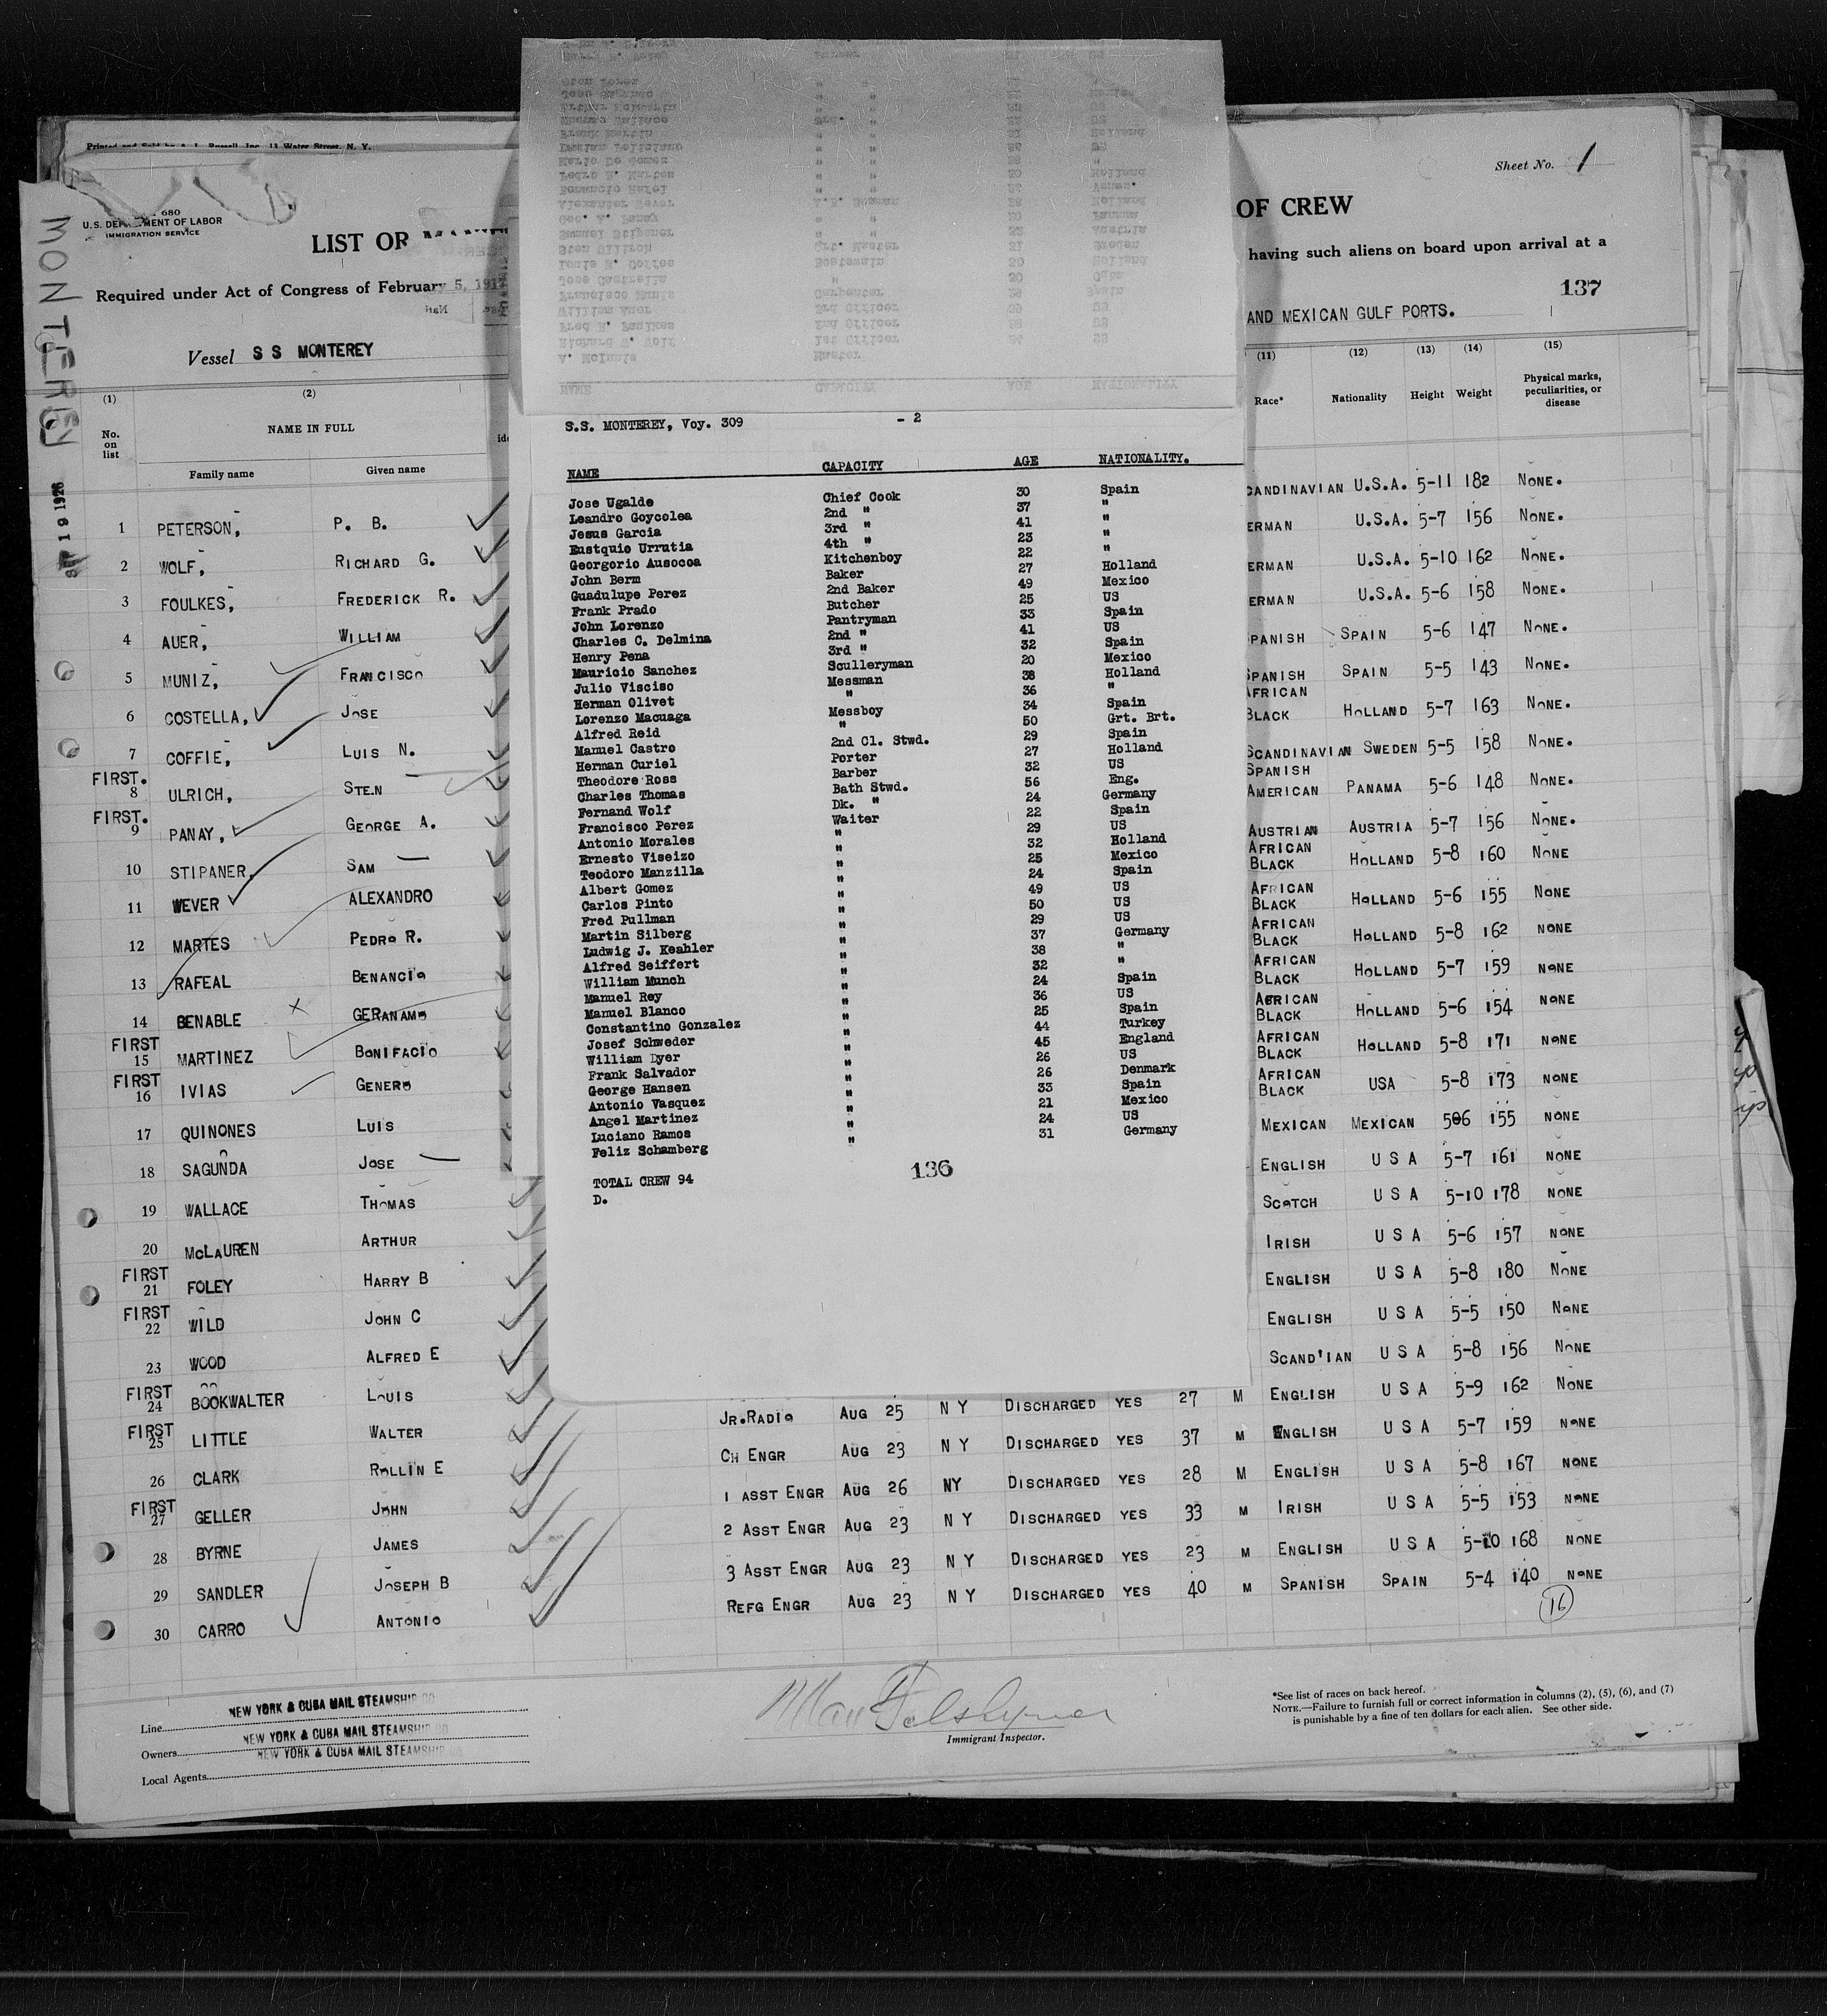 Sheet No. 1
U.S. DEPARTMENT OF LABOR
IMMIGRATION SERVICE
MONTEREY
SEP 19 1926
LIST OF
OF CREW
Required under Act of Congress of February 5, 1917
having such aliens on board upon arrival at a
137
AND MEXICAN GULF PORTS.
Vessel S S MONTEREY
(1) (2) (11) (12) (13) (14) (15)
No. on list NAME IN FULL Race* Nationality Height Weight Physical marks, peculiarities, or disease
Family name Given name
1 PETERSON, P. B. CANDINAVIAN U.S.A. 5-11 182 NONE.
2 WOLF, RICHARD G. ERMAN U.S.A. 5-7 156 NONE.
3 FOULKES, FREDERICK R. ERMAN U.S.A. 5-10 162 NONE.
4 AUER, WILLIAM ERMAN U.S.A. 5-6 158 NONE.
5 MUNIZ, FRANCISCO PANISH SPAIN 5-6 147 NONE.
6 COSTELLA, JOSE SPANISH SPAIN 5-5 143 NONE.
7 COFFIE, LUIS N. AFRICAN BLACK HOLLAND 5-7 163 NONE.
FIRST. 8 ULRICH, STEN SCANDINAVIAN SWEDEN 5-5 158 NONE.
FIRST. 9 PANAY, GEORGE A. SPANISH AMERICAN PANAMA 5-6 148 NONE.
10 STIPANER, SAM AUSTRIAN AUSTRIA 5-7 156 NONE.
11 WEVER ALEXANDRO AFRICAN BLACK HOLLAND 5-8 160 NONE
12 MARTES PEDRO R. AFRICAN BLACK HOLLAND 5-6 155 NONE
13 RAFEAL BENANCIO AFRICAN BLACK HOLLAND 5-8 162 NONE
14 BENABLE X GERANAMO AFRICAN BLACK HOLLAND 5-7 159 NONE
FIRST 15 MARTINEZ BONIFACIO AFRICAN BLACK HOLLAND 5-6 154 NONE
FIRST 16 IVIAS GENERO AFRICAN BLACK HOLLAND 5-8 171 NONE
17 QUINONES LUIS AFRICAN BLACK USA 5-8 173 NONE
18 SAGUNDA JOSE MEXICAN MEXICAN 506 155 NONE
19 WALLACE THOMAS ENGLISH U S A 5-7 161 NONE
20 MCLAUREN ARTHUR SCOTCH U S A 5-10 178 NONE
FIRST 21 FOLEY HARRY B IRISH U S A 5-6 157 NONE
FIRST 22 WILD JOHN C ENGLISH U S A 5-8 180 NONE
23 WOOD ALFRED E ENGLISH U S A 5-5 150 NONE
FIRST 24 BOOKWALTER LOUIS SCAND'IAN U S A 5-8 156 NONE
FIRST 25 LITTLE WALTER JR.RADIO AUG 25 N Y DISCHARGED YES 27 M ENGLISH U S A 5-9 162 NONE
26 CLARK ROLLIN E CH ENGR AUG 23 N Y DISCHARGED YES 37 M ENGLISH U S A 5-7 159 NONE
FIRST 27 GELLER JOHN 1 ASST ENGR AUG 26 NY DISCHARGED YES 28 M ENGLISH U S A 5-8 167 NONE
28 BYRNE JAMES 2 ASST ENGR AUG 23 N Y DISCHARGED YES 33 M IRISH U S A 5-5 153 NONE
29 SANDLER JOSEPH B 3 ASST ENGR AUG 23 N Y DISCHARGED YES 23 M ENGLISH U S A 5-10 168 NONE
30 CARRO ANTONIO REFG ENGR AUG 23 N Y DISCHARGED YES 40 M SPANISH SPAIN 5-4 140 NONE
16
S.S. MONTEREY, Voy. 309 - 2
NAME CAPACITY AGE NATIONALITY.
Jose Ugalde Chief Cook 30 Spain
Leandro Goycolea 2nd " 37 "
Jesus Garcia 3rd " 41 "
Eustquio Urrutia 4th " 23 "
Georgorio Ausocoa Kitchenboy 22 "
John Berm Baker 27 Holland
Guadulupe Perez 2nd Baker 49 Mexico
Frank Prado Butcher 25 US
John Lorenzo Pantryman 33 Spain
Charles C. Delmina 2nd " 41 US
Henry Pena 3rd " 32 Spain
Mauricio Sanchez Sculleryman 20 Mexico
Julio Visciso Messman 38 Holland
Herman Olivet " 36 "
Lorenzo Macuaga Messboy 34 Spain
Alfred Reid " 50 Grt. Brt.
Manuel Castro 2nd Cl. Stwd. 29 Spain
Herman Curiel Porter 27 Holland
Theodore Ross Barber 32 US
Charles Thomas Bath Stwd. 56 Eng.
Fernand Wolf Dk. " 24 Germany
Francisco Perez Waiter 22 Spain
Antonio Morales " 29 US
Ernesto Viseizo " 32 Holland
Teodoro Manzilla " 25 Mexico
Albert Gomez " 24 Spain
Carlos Pinto " 49 US
Fred Pullman " 50 US
Martin Silberg " 29 US
Ludwig J. Keahler " 37 Germany
Alfred Seiffert " 38 "
William Munch " 32 "
Manuel Rey " 24 Spain
Manuel Blanco " 36 US
Constantino Gonzalez " 25 Spain
Josef Schweder " 44 Turkey
William Dyer " 45 England
Frank Salvador " 26 US
George Hansen " 26 Denmark
Antonio Vasquez " 33 Spain
Angel Martinez " 21 Mexico
Luciano Ramos " 24 US
Feliz Schamberg " 31 Germany
TOTAL CREW 94
136
D.
Line NEW YORK & CUBA MAIL STEAMSHIP CO
Owners NEW YORK & CUBA MAIL STEAMSHIP CO
Local Agents NEW YORK & CUBA MAIL STEAMSHIP CO
Immigrant Inspector.
*See list of races on back hereof.
NOTE.—Failure to furnish full or correct information in columns (2), (5), (6), and (7)
is punishable by a fine of ten dollars for each alien. See other side.